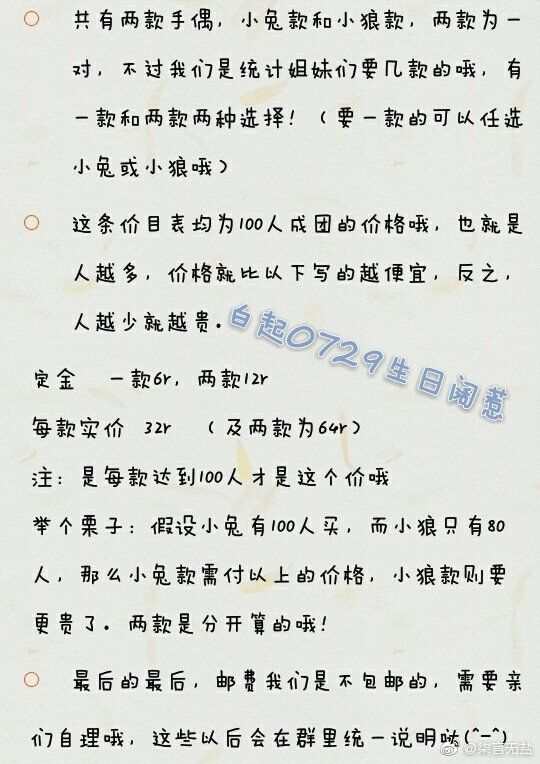 共有两款手偶，小兔款和小狼款，两款为一
对，不过我们是统计姐妹们要几款的哦，有
一款和两款两种选择！（要一款的可以任选
小兔或小狼哦）
这条价目表均为100人成团的价格哦，也就是
人越多，价格就比以下写的越便宜，反之，
人越少就越贵。
白起0729生日闹惹
定金 一款6r，两款12r
每款实价 32r （及两款为64r）
注：是每款达到100人才是这个价哦
举个栗子：假设小兔有100人买，而小狼只有80
人，那么小兔款需付以上的价格，小狼款则要
更贵了。两款是分开算的哦！
最后的最后，邮费我们是不包邮的，需要亲
们自理哦，这些以后会在群里统一说明哒(^-^)
@柒言无盐